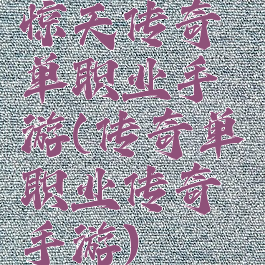 惊天传奇
单职业手
游(传奇单
职业传奇
手游)